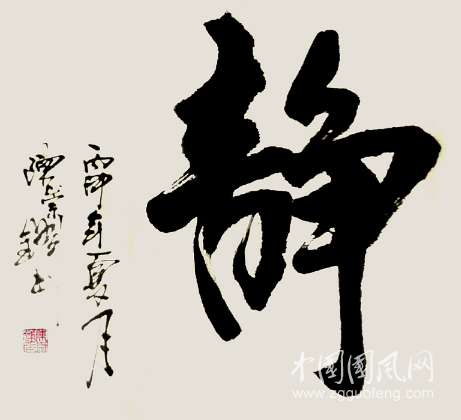 静
丙申年夏月
书
中国國风网
www.zgguofeng.com